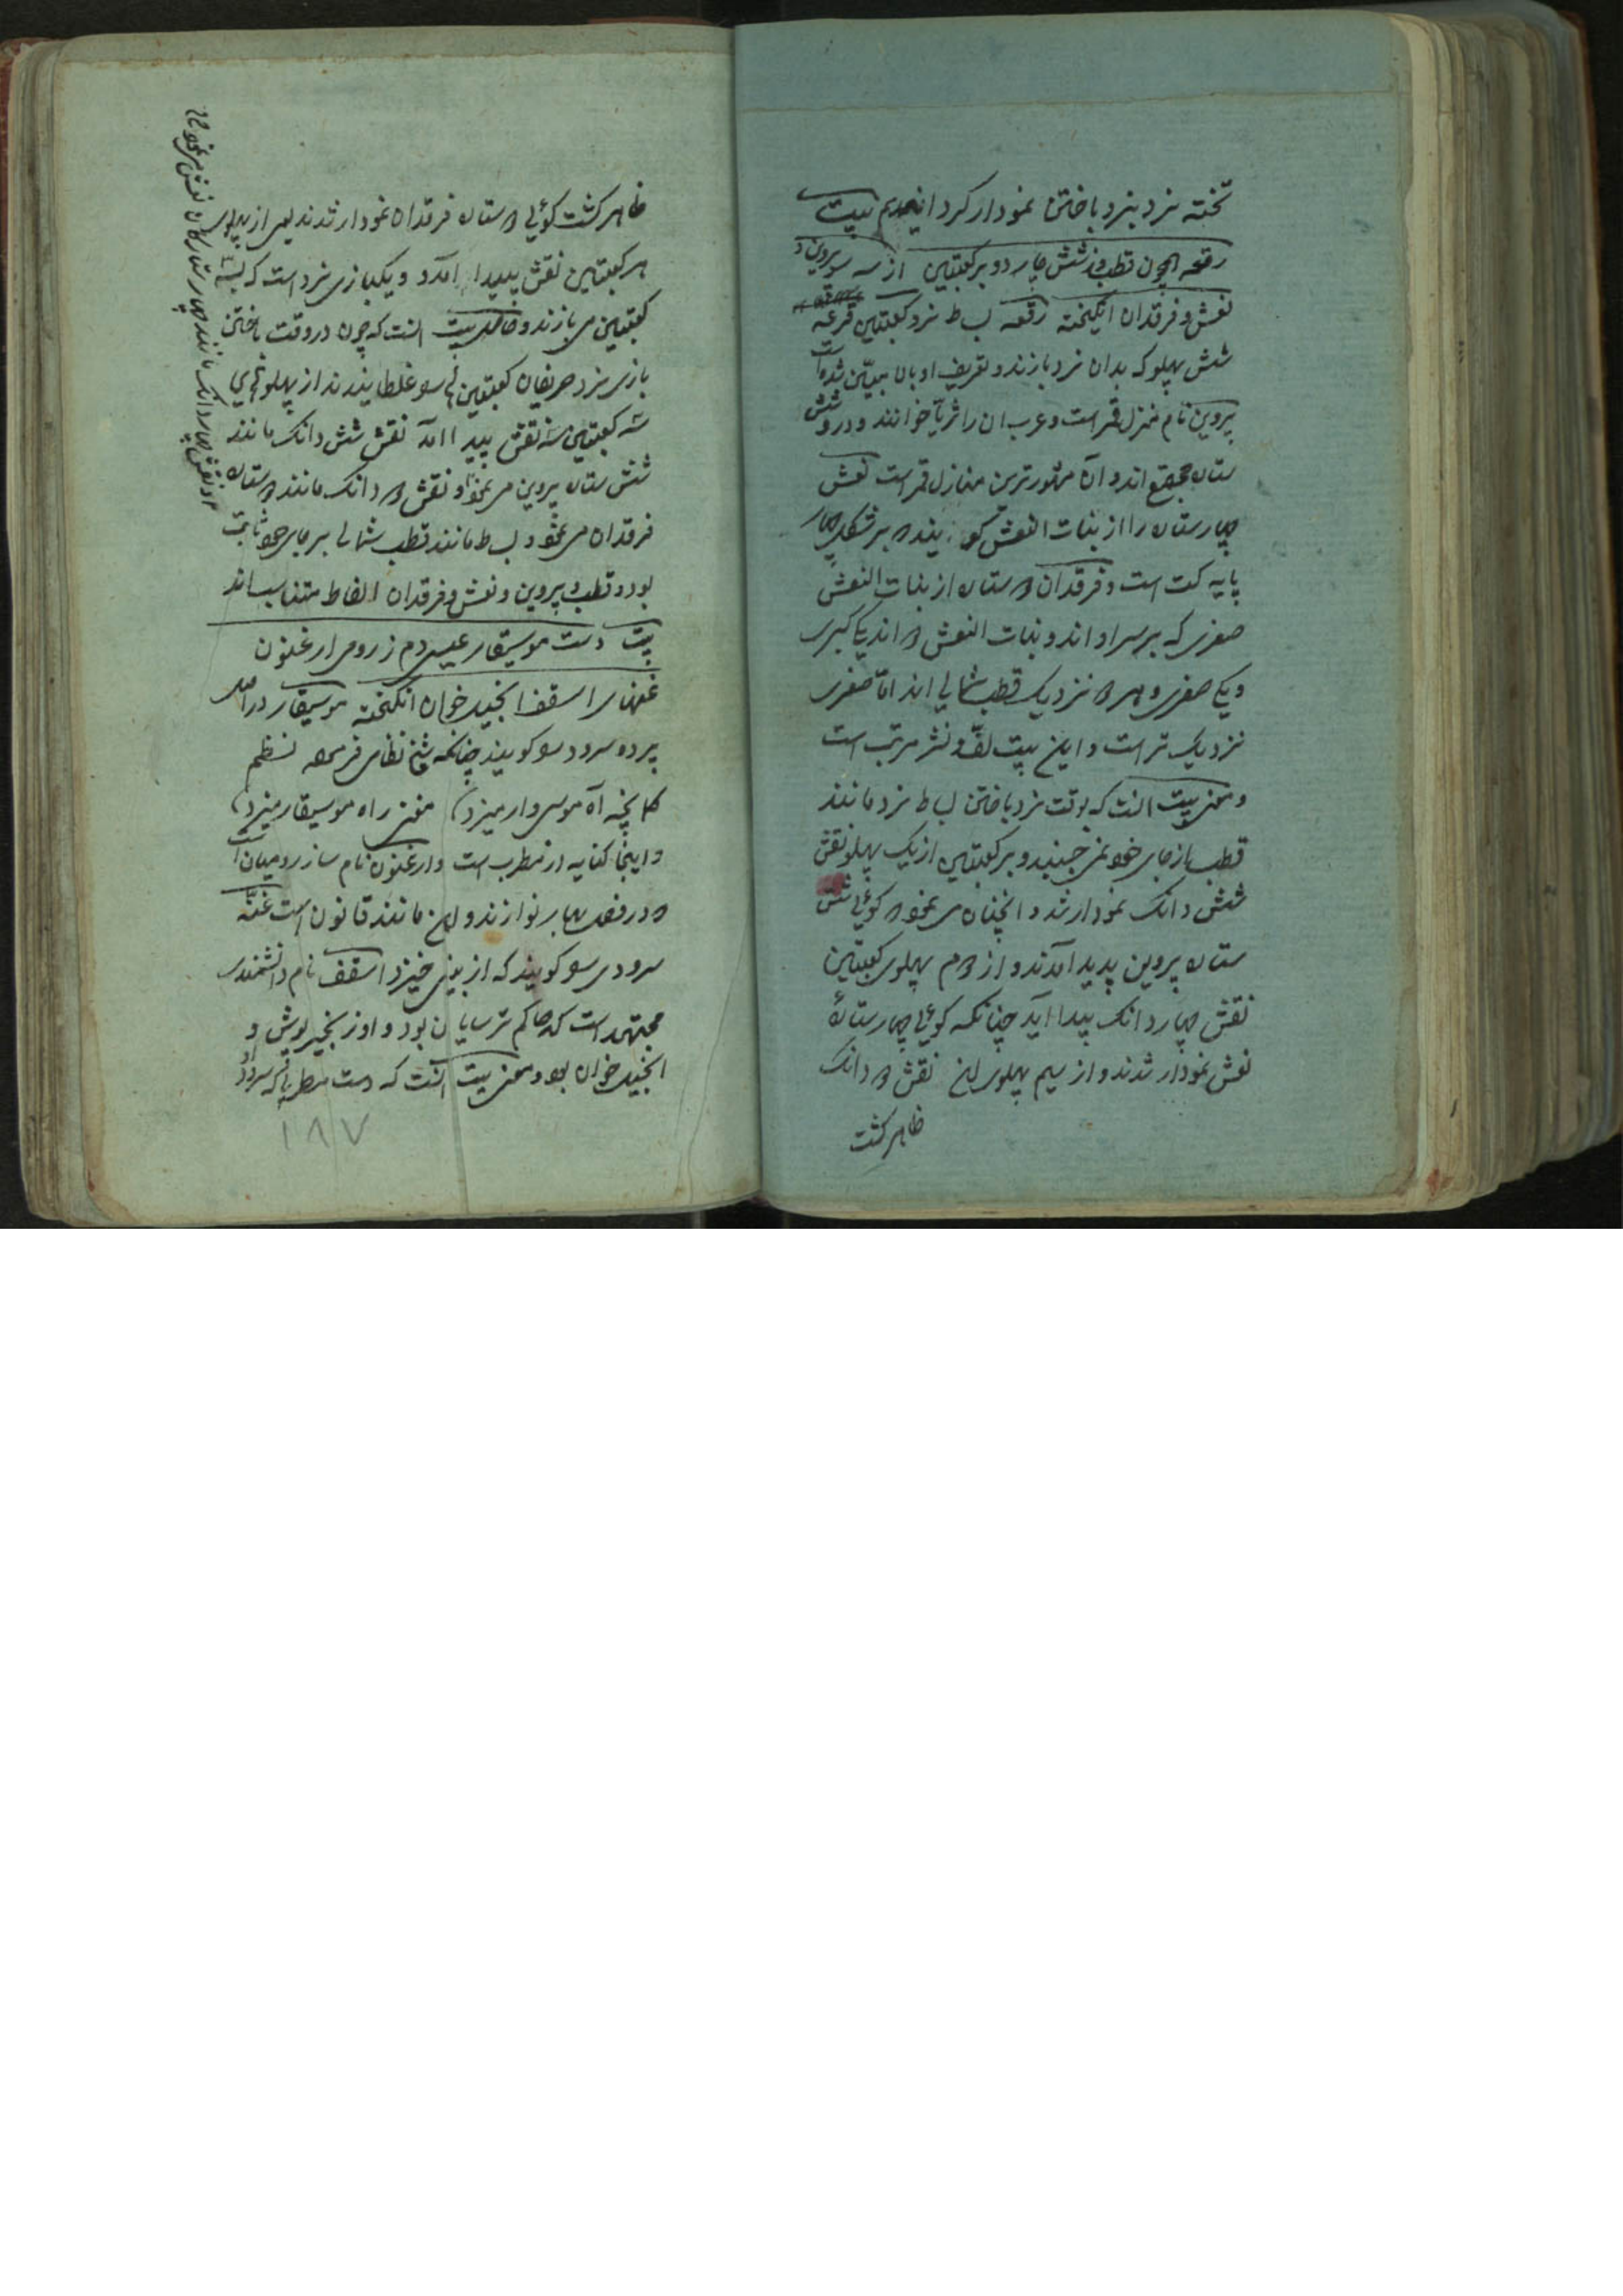 تخته نرد بنرد باختن نمودار کردانیدم بیت
رقعه همچون قطب و شش چار دو بر کعبتین از سه سو پروین و
نعش و فرقدان انگیخته رقعه بساط نرد کعبتین قرعه
شش پهلو که بدان نرد بازند و تعریف او بالا مبیّن شده است
پروین نام منزل قمر است و عرب ان را ثریّا خوانند و درو شش
ستاره مجتمع اند و آن مشهورترین منازل قمر است نعش
چهار ستاره را از بنات النعش کویند که بر شکل چهار
پایه کت است و فرقدان دو ستاره از بنات النعش
صغری که بر سر او اند و بنات النعش دو اند یکی کبری
و یکی صغری و هر دو نزدیک قطب شمالی اند امّا صغری
نزدیک تر است و این بیت لفّ و نشر مرتب است
و معنی بیت انست که بوقت نرد باختن بساط نرد مانند
قطب از جای خود نمی جنبید و بر کعبتین از یک پهلو نقش
شش دانک نمودار شد و انچنان می نمود که کوئی شش
ستاره پروین پدید آمدند و از دوم پهلوی کعبتین
نقش چهار دانک پیدا آید چنانکه کوئی چهار ستارهٔ
نعش نمودار شدند و از سیم پهلوی این نقش دو دانک
ظاهر کشت
ظاهر کشت کوئی دو ستاره فرقدان نمودار شدند یعنی از پهلوی
هر کعبتین نقش پیدا امد و یکبازی نرد است که بسه
کعبتین می بازند و حاصل بیت انست که چون در وقت باختن
بازی نرد حریفان کعبتین سو غلطانیدند از پهلو
سه کعبتین سه نقش پیدا امد نقش شش دانک مانند
شش ستاره پروین می نمود و نقش دو دانک مانند دو ستاره
فرقدان می نمود و بساط مانند قطب شمالی بر جای خود ثابت
بود و قطب و پروین و نعش و فرقدان الفاظ متناسب اند
بیت دست موسیقار عیسی دم ز رومی ارغنون
غنهای اسقف انجیل خوان انکیخته موسیقار در اصل
پرده سرود سو کویند چنانکه شیخ نظامی فرموده نظم
کلیچه آه موسی وار میزد مغنی راه موسیقار میزد
و اینجا کنایه از مطرب است و ارغنون نام ساز رومیان است
که در فصل بهار نوازند و این مانند قانون است غنّه
سرودی سو کویند که از بینی خیزد اسقف نام دانشمندی
مجتهد است که حاکم ترسایان بود و او زنجیر پوش و
انجیل خوان بود و معنی بیت انست که دست مطربی که سرود
و نقش چهار دانک مانند چهار ستارکان نعش می نمود ۱۲
۱۸۷